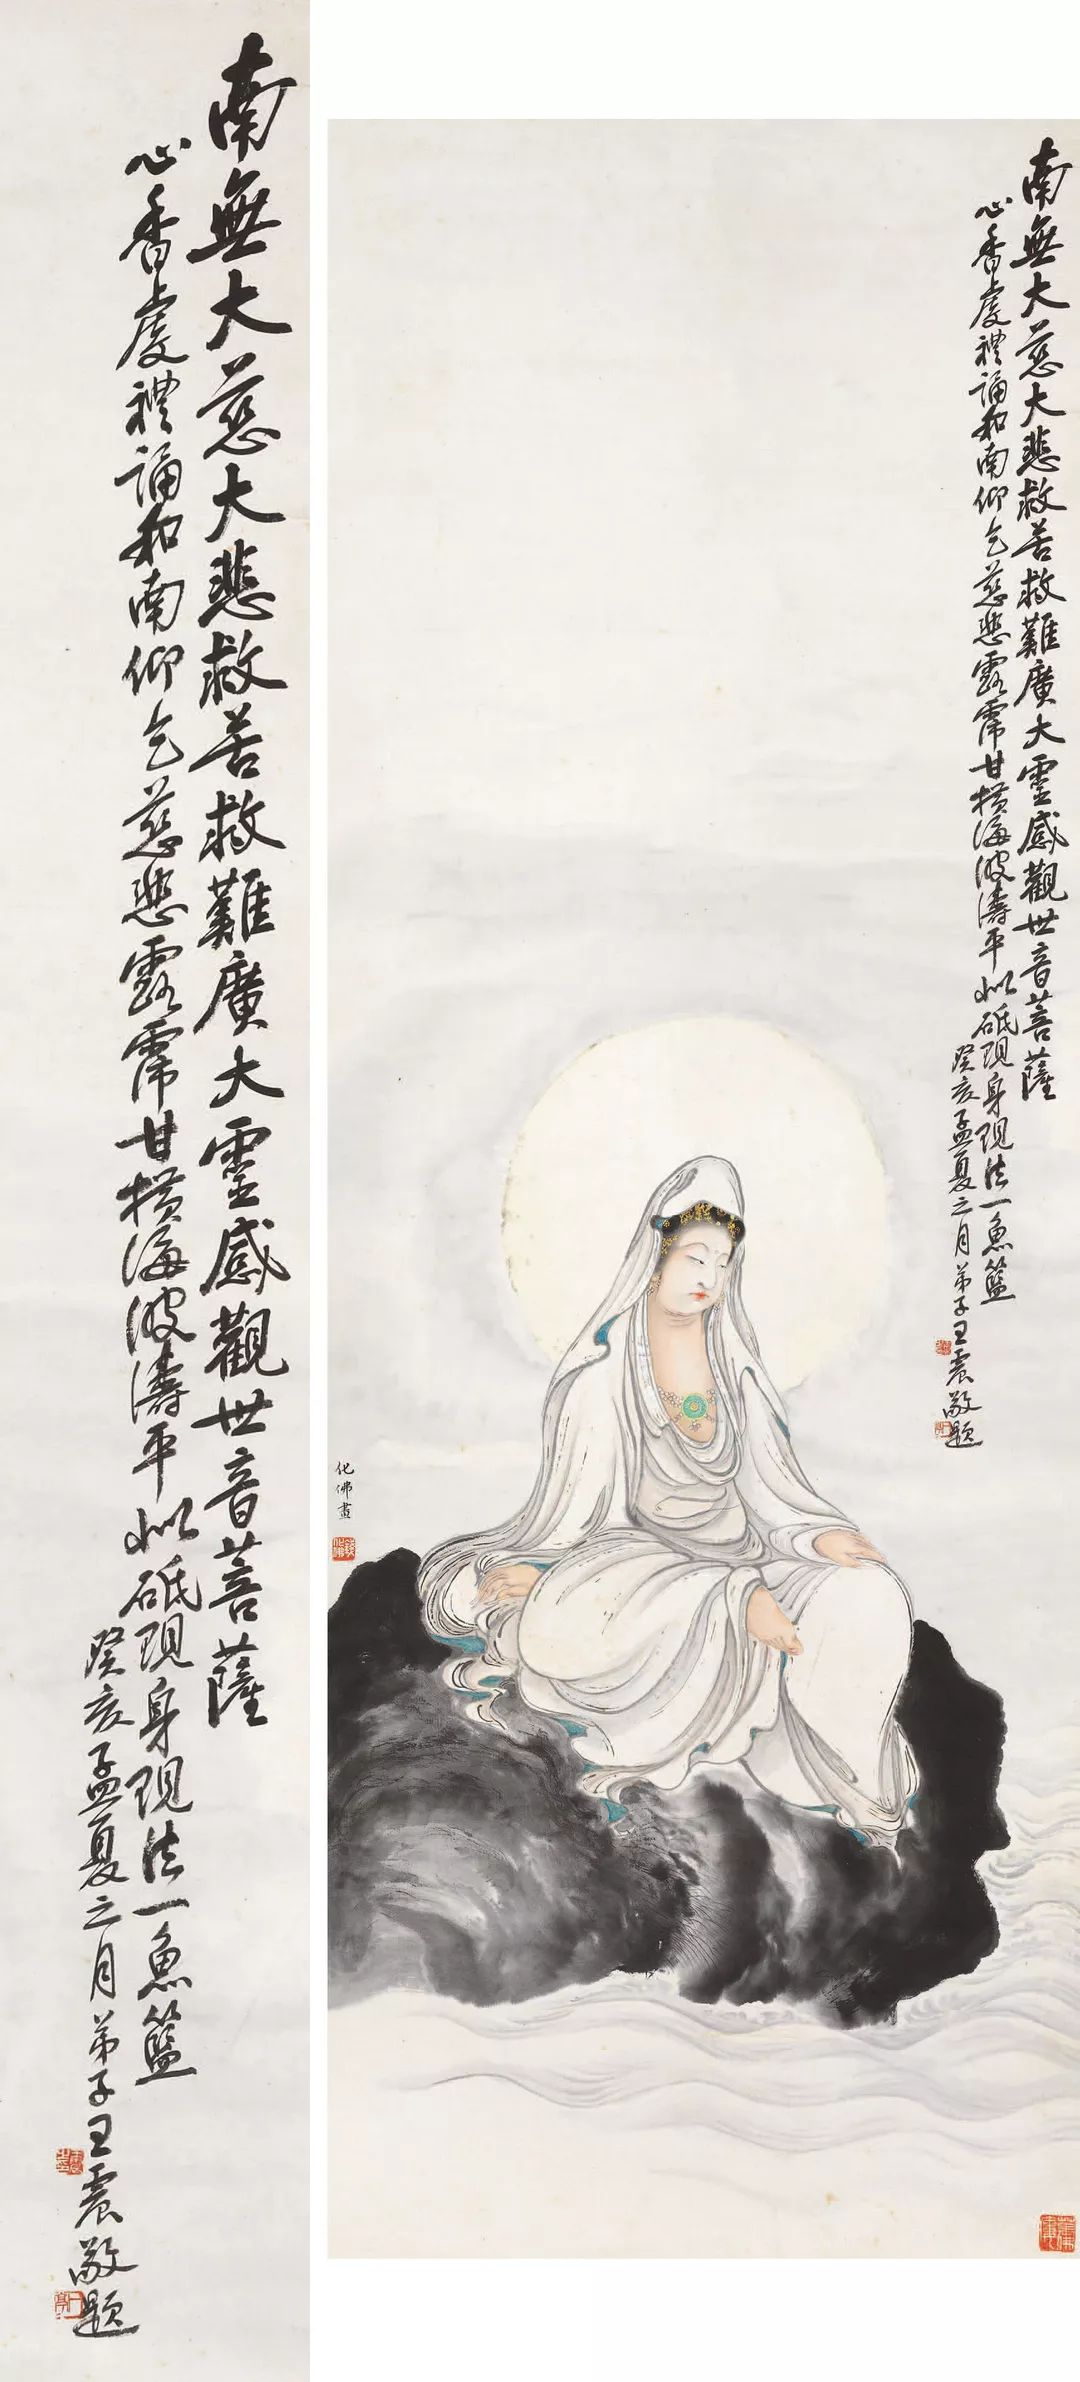 南無大慈大悲救苦救難廣大靈感觀世音菩薩
心香虔禮誦和南仰乞慈悲露霈甘横海波濤平似砥現身現法一魚籃
癸亥孟夏之月弟子王震敬題
南無大慈大悲救苦救難廣大靈感觀世音菩薩
心香虔禮誦和南仰乞慈悲露霈甘横海波濤平似砥現身現法一魚籃
癸亥孟夏之月弟子王震敬題
化佛畫